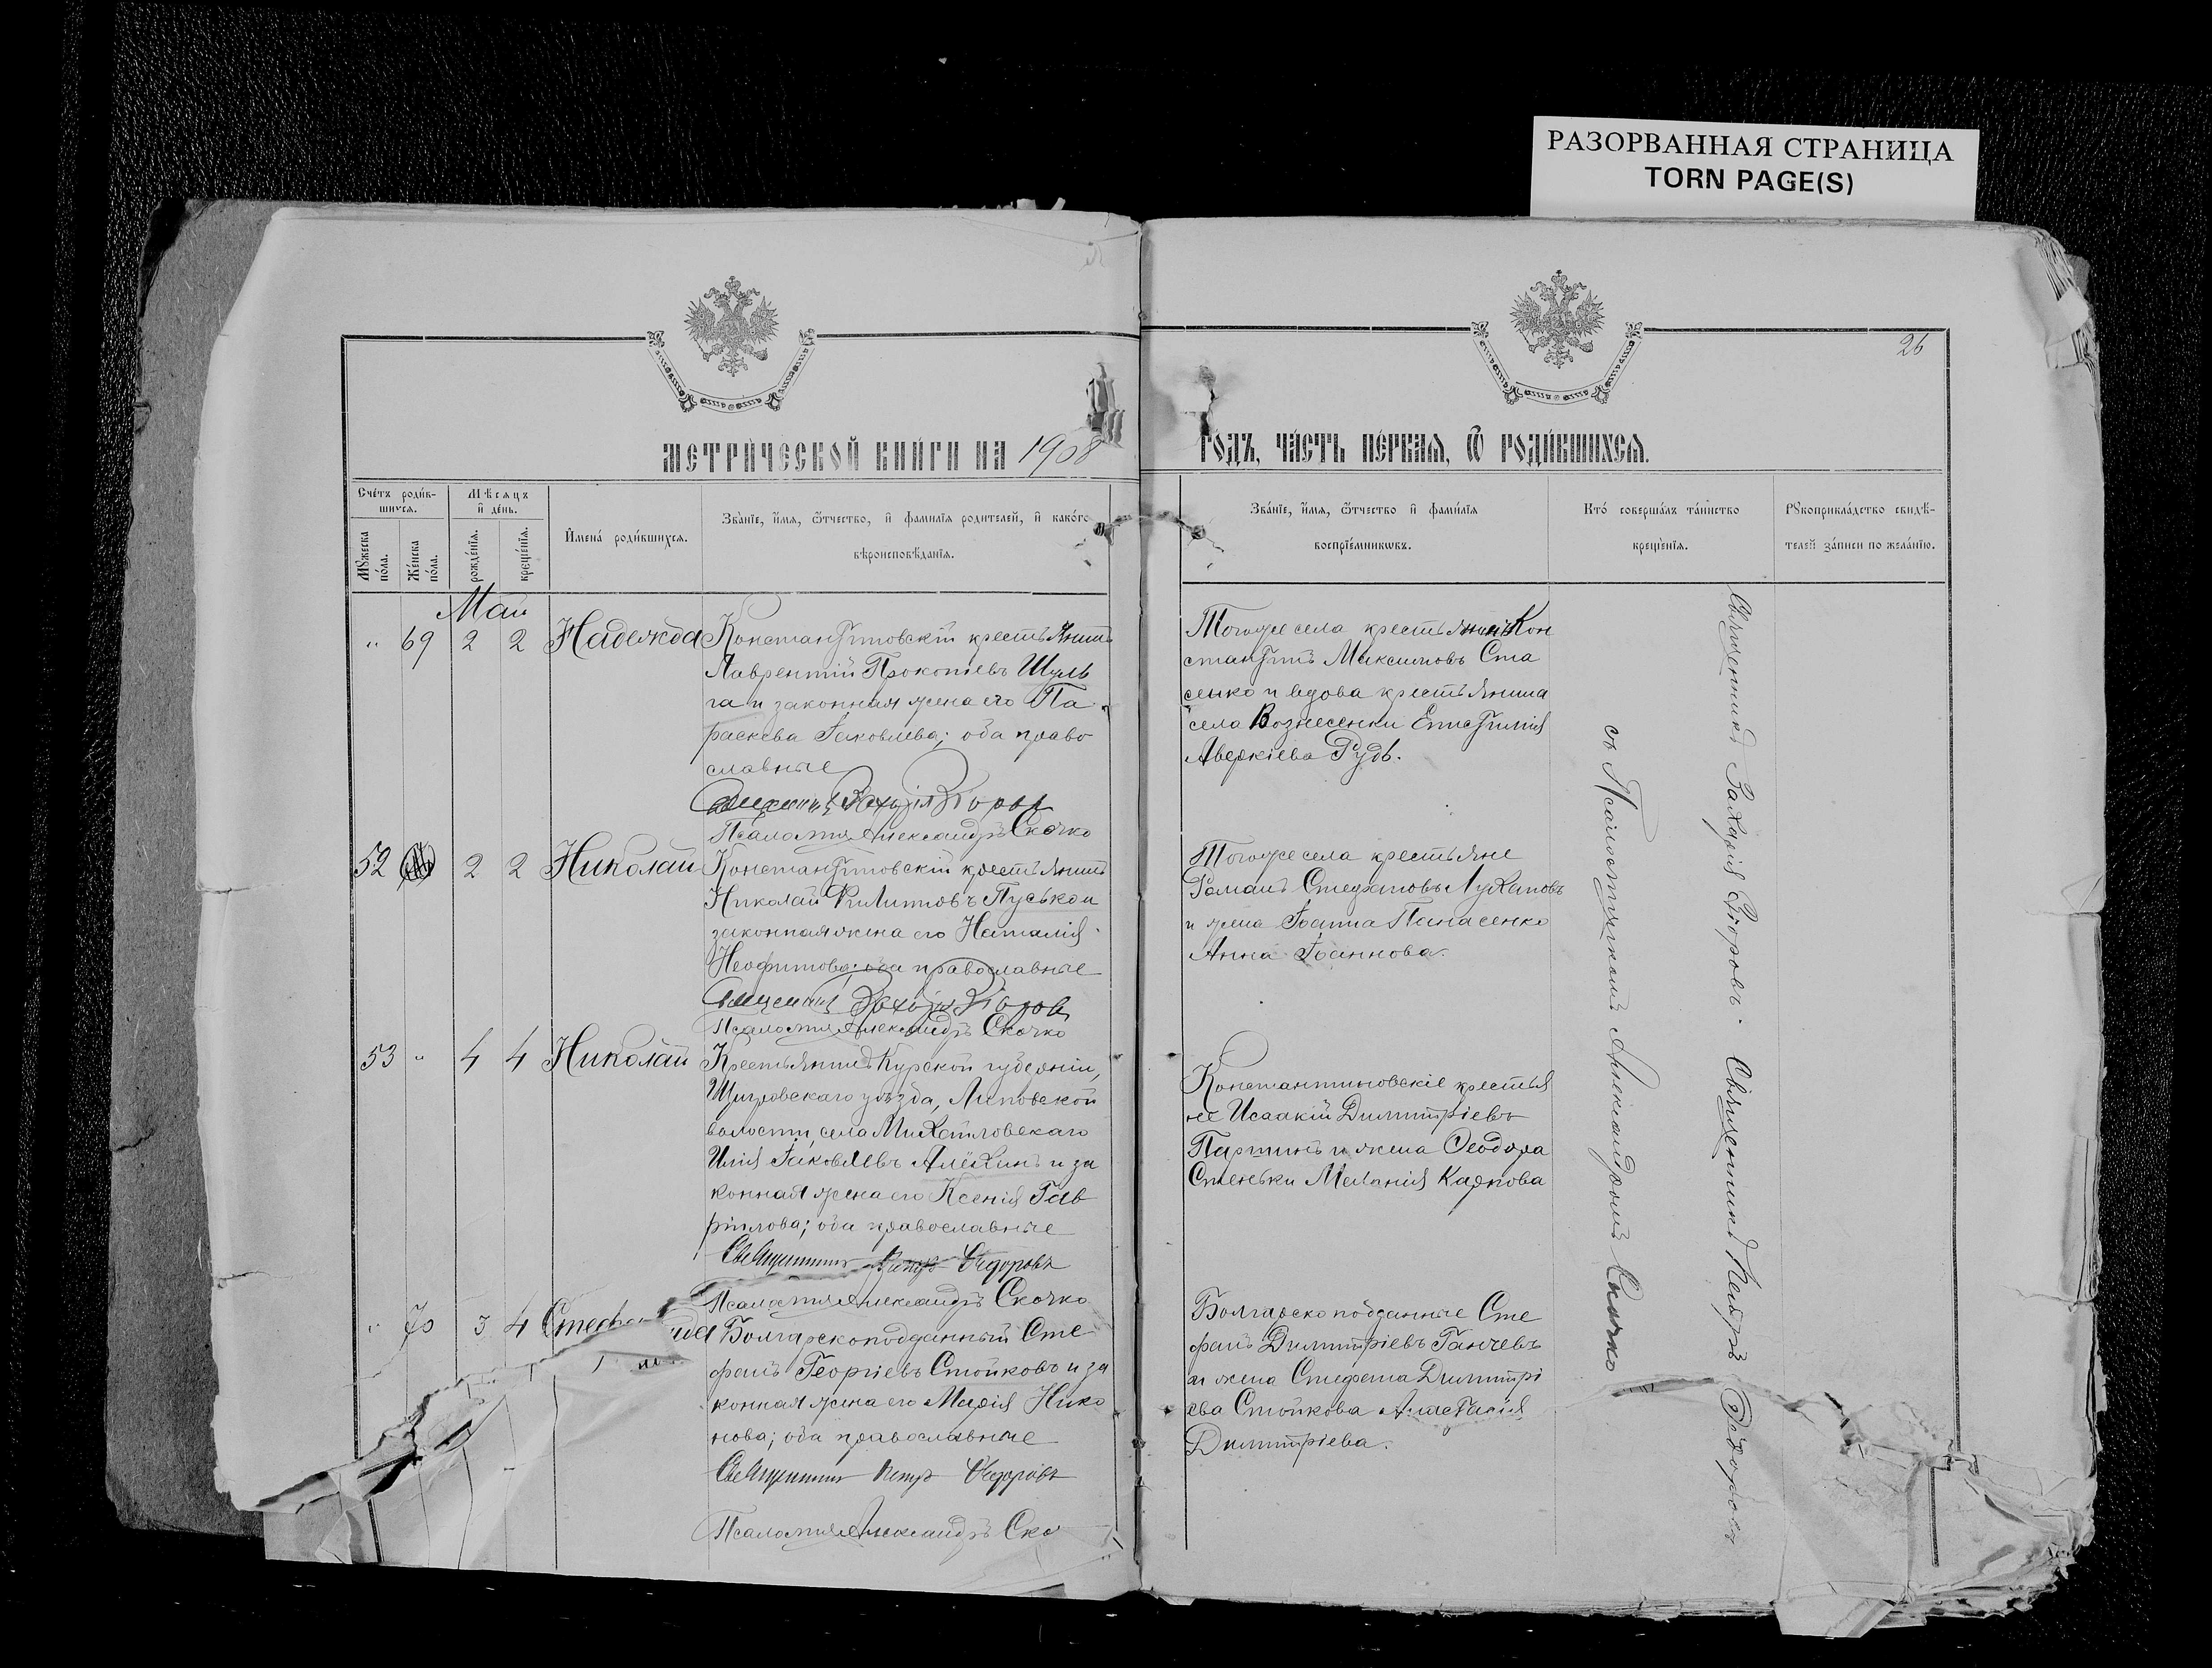 РАЗОРВАННАЯ СТРАНИЦА
TORN PAGE(S)
26
МЕТРИЧЕСКОЙ КНИГИ НА 1908
ГОДЪ, ЧАСТЬ ПЕРВАЯ, Ѿ РОДИВШИХСЯ.
Счетъ родив-
шихся.
Мѣсяцъ
и день.
Мужеска
пола.
Женска
пола.
рожденія.
крещенія.
Имена родившихся.
Званіе, имя, ѿтчество, и фамилія родителей, и какого
вѣроисповѣданія.
Званіе, имя, ѿтчество и фамилія
воспріемниковъ.
Кто совершалъ таинство
крещенія.
Рукоприкладство свидѣ-
телей записи по желанію.
Май
" 69 2 2 Надежда
Константиновскій крестьянинъ
Лаврентій Прокопіевъ Шуль
га и законная жена его Па
раскева Іаковлева; оба право
славные
Священникъ Захарія
Псаломщ Александръ Скочко
Тогоже села крестьянинъ Кон
стантинъ Максимовъ Ста
сенко и вдова крестьянина
села Вознесенки Епистимія
Аверкіева Рудь.
52 2 2 Николай
Константиновскій крестьянинъ
Николай Филиповъ Пусько и
законная жена его Наталія
Неофитова; оба православные
Священникъ Захарія
Псаломщ Александръ Скочко
Тогоже села крестьяне
Романъ Стефановъ Лухановъ
и жена Іоанна Панасенко
Анна Іоаннова.
53 " 4 4 Николай
Крестьянинъ Курской губерніи,
Щигровскаго уѣзда, Липовской
волости, села Михайловскаго
Илія Іаковлевъ Алёхинъ и за
конная жена его Ксенія Гав
ріилова; оба православные
Священникъ Петръ Ѳедоровъ
Псаломщ Александръ Скочко
Константиновскіе крестья
не Исаакій Димитріевъ
Партинъ и жена Ѳеодора
Стеньки Меланія Карпова
" 70 3 4
Болгарскоподданный Сте
фанъ Георгіевъ Стойковъ и за
конная жена его Марія Нико
нова; оба православные
Священникъ Петръ Ѳедоровъ
Псаломщ Александръ Ско
Болгарскоподданные Сте
фанъ Димитріевъ Ганчевъ
и жена Стефана Димитрі
ева Стойкова Анастасія
Димитріева.
Священникъ Захарія. Священникъ Петръ Ѳедоровъ
съ Псаломщикомъ Александромъ Скочко